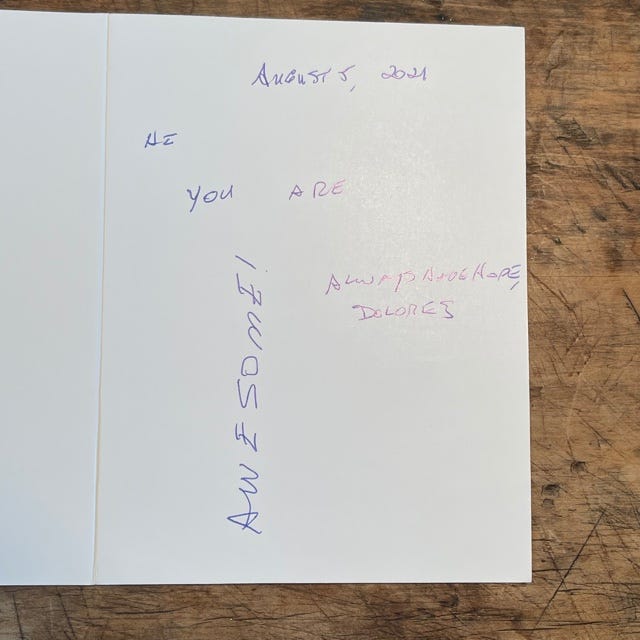 AUGUST 5, 2021
AE
YOU ARE
AWESOME!
ALWAYS HAVE HOPE,
DOLORES